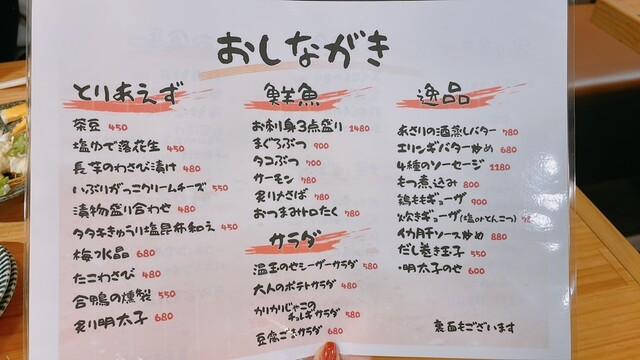 おしながき
とりあえず
茶豆 450
塩ゆで落花生 450
長芋のわさび漬け 480
いぶりがっこクリームチーズ 550
漬物盛り合わせ 480
タタキきゅうり塩昆布和え 450
梅水晶 680
たこわさび 480
合鴨の燻製 550
炙り明太子 680
鮮魚
お刺身3点盛り 1480
まぐろぶつ 900
タコぶつ 700
サーモン 780
炙りさば 780
おつまみトロたく 780
サラダ
温玉のせシーザーサラダ 580
大人のポテトサラダ 480
かりかりじゃこの
チョレギサラダ 580
豆腐ごまサラダ 680
逸品
あさりの酒蒸しバター 780
エリンギバター炒め 680
4種のソーセージ 1180
もつ煮込み 800
鶏ももギョーザ 900
炊きギョーザ(塩orとんこつ)
イカ肝ソース炒め 880
だし巻き玉子 550
・明太子のせ 600
裏面もございます